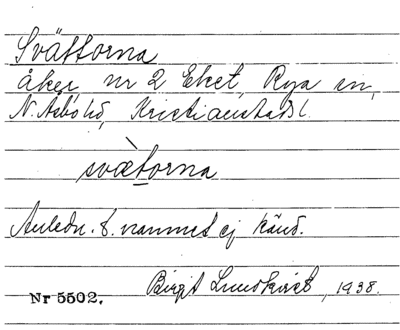 Svättorna
åker nr 2 Eket, Rya sn,
N. Åsbo hd, Kristianstads l.
svætorna
Anledn. t. namnet ej känd.
Birgit Lundkvist, 1938.
Nr 5502.